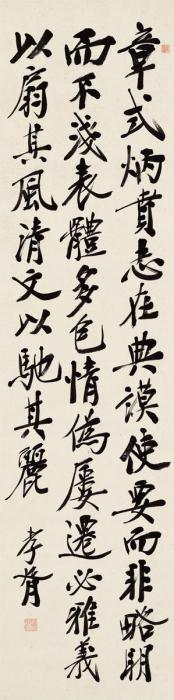 章式炳賁志在典謨使要而非略明
而不淺表體多包情偽屢遷必雅義
以扇其風清文以馳其麗
孝胥